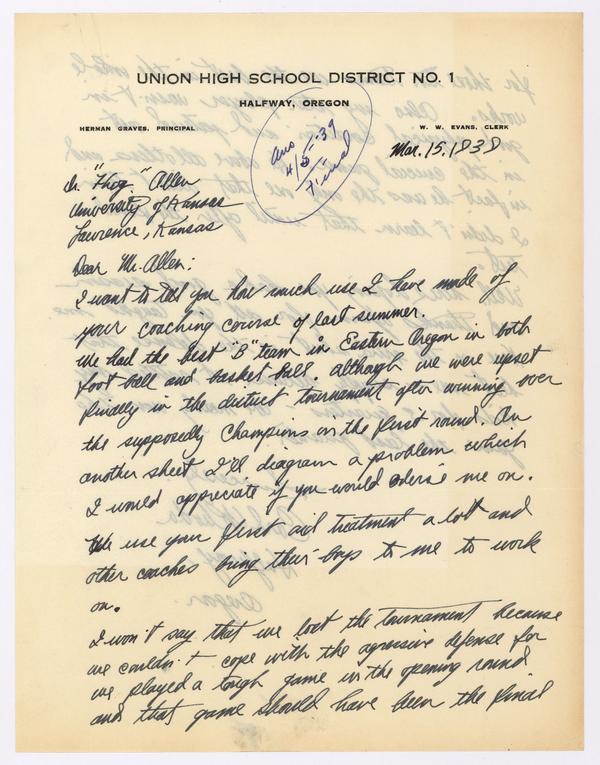 UNION HIGH SCHOOL DISTRICT NO. 1
HALFWAY, OREGON
HERMAN GRAVES, PRINCIPAL
W. W. EVANS, CLERK
Ans
4/5-39
Mar. 15, 1938
Dr. "Phog" Allen
University of Kansas
Lawrence, Kansas
Dear Mr. Allen:
I want to tell you how much use I have made of
your coaching course of last summer.
We had the best "B" team in Eastern Oregon in both
foot ball and basket ball. although we were upset
finally in the district tournament after winning over
the supposedly Champions in the first round. On
another sheet I'll diagram a problem which
I would appreciate if you would advise me on.
We use your first aid treatment a lott and
other coaches bring their boys to me to work
on.
I won't say that we lost the tournament because
we couldn't cope with the agressive defense for
we played a tough game in the opening round
and that game should have been the final